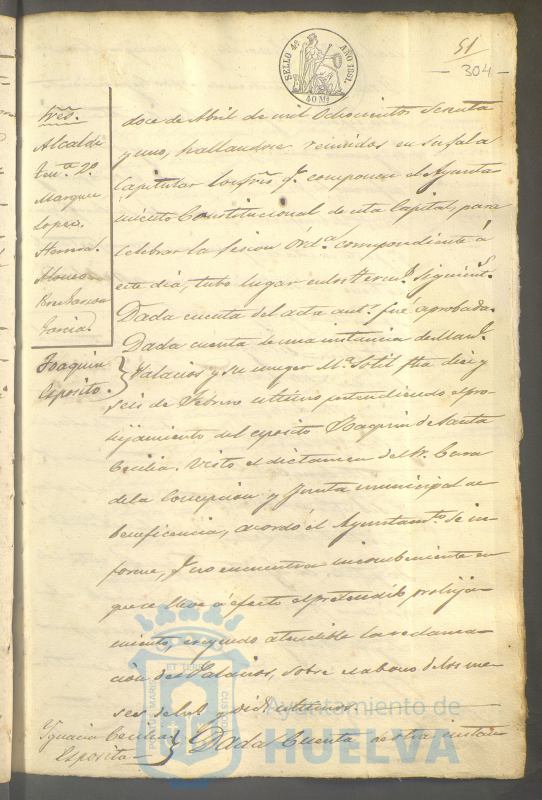 51
304
SELLO 4º AÑO 1861.
40 Ms
Sres.
Alcalde
Ten.ª 2º
Marquez
Lopez
Herrera
Garcia
doce de Abril de mil Ochocientos Sesenta
y uno, hallandose reunidos en su sala
Capitular los Sres q.e componen el Ayunta
miento Constitucional de esta Capital, para
celebrar la sesion Ord.ª correspondiente á
este dia, tubo lugar en los term.s siguient.s
Dada cuenta del acta ant.r fue aprobada.
Joaquin
Esposito.
Dada cuenta de una instancia de Man.l
Palacios y su muger M.ª Sotil fha diez y
seis de Febrero ultimo pretendiendo el pro-
hijamiento del esposito Joaquin de Santa
Cecilia. Visto el dictamen del Sr. Cura
de la Concepcion y Junta municipal de
beneficencia, acordó el Ayuntam.to se in-
forme, q.e no encuentra incombeniente en
que se lleve á efecto el pretendido prohija-
miento, no siendo atendible la reclama-
cion del Palacios, sobre el abono de los me-
ses de
Ygnacio Cecilia
Esposito
Dada Cuenta de otra instan-
PORTUS MARIS ET TERRAE CUSTODIA
Ayuntamiento de
HUELVA